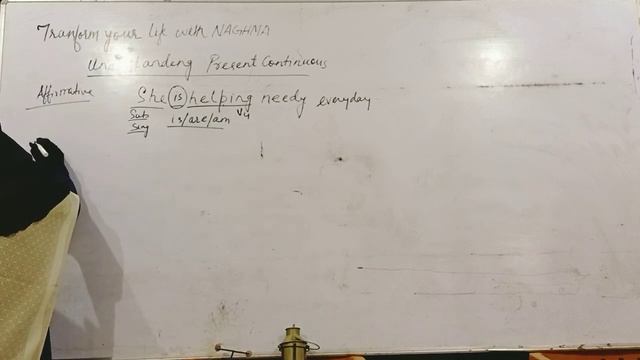 Transform your life with NAGHMA
Understanding Present Continuous
Affirmative She is helping needy everyday
Sub is/are/am V4
Sing